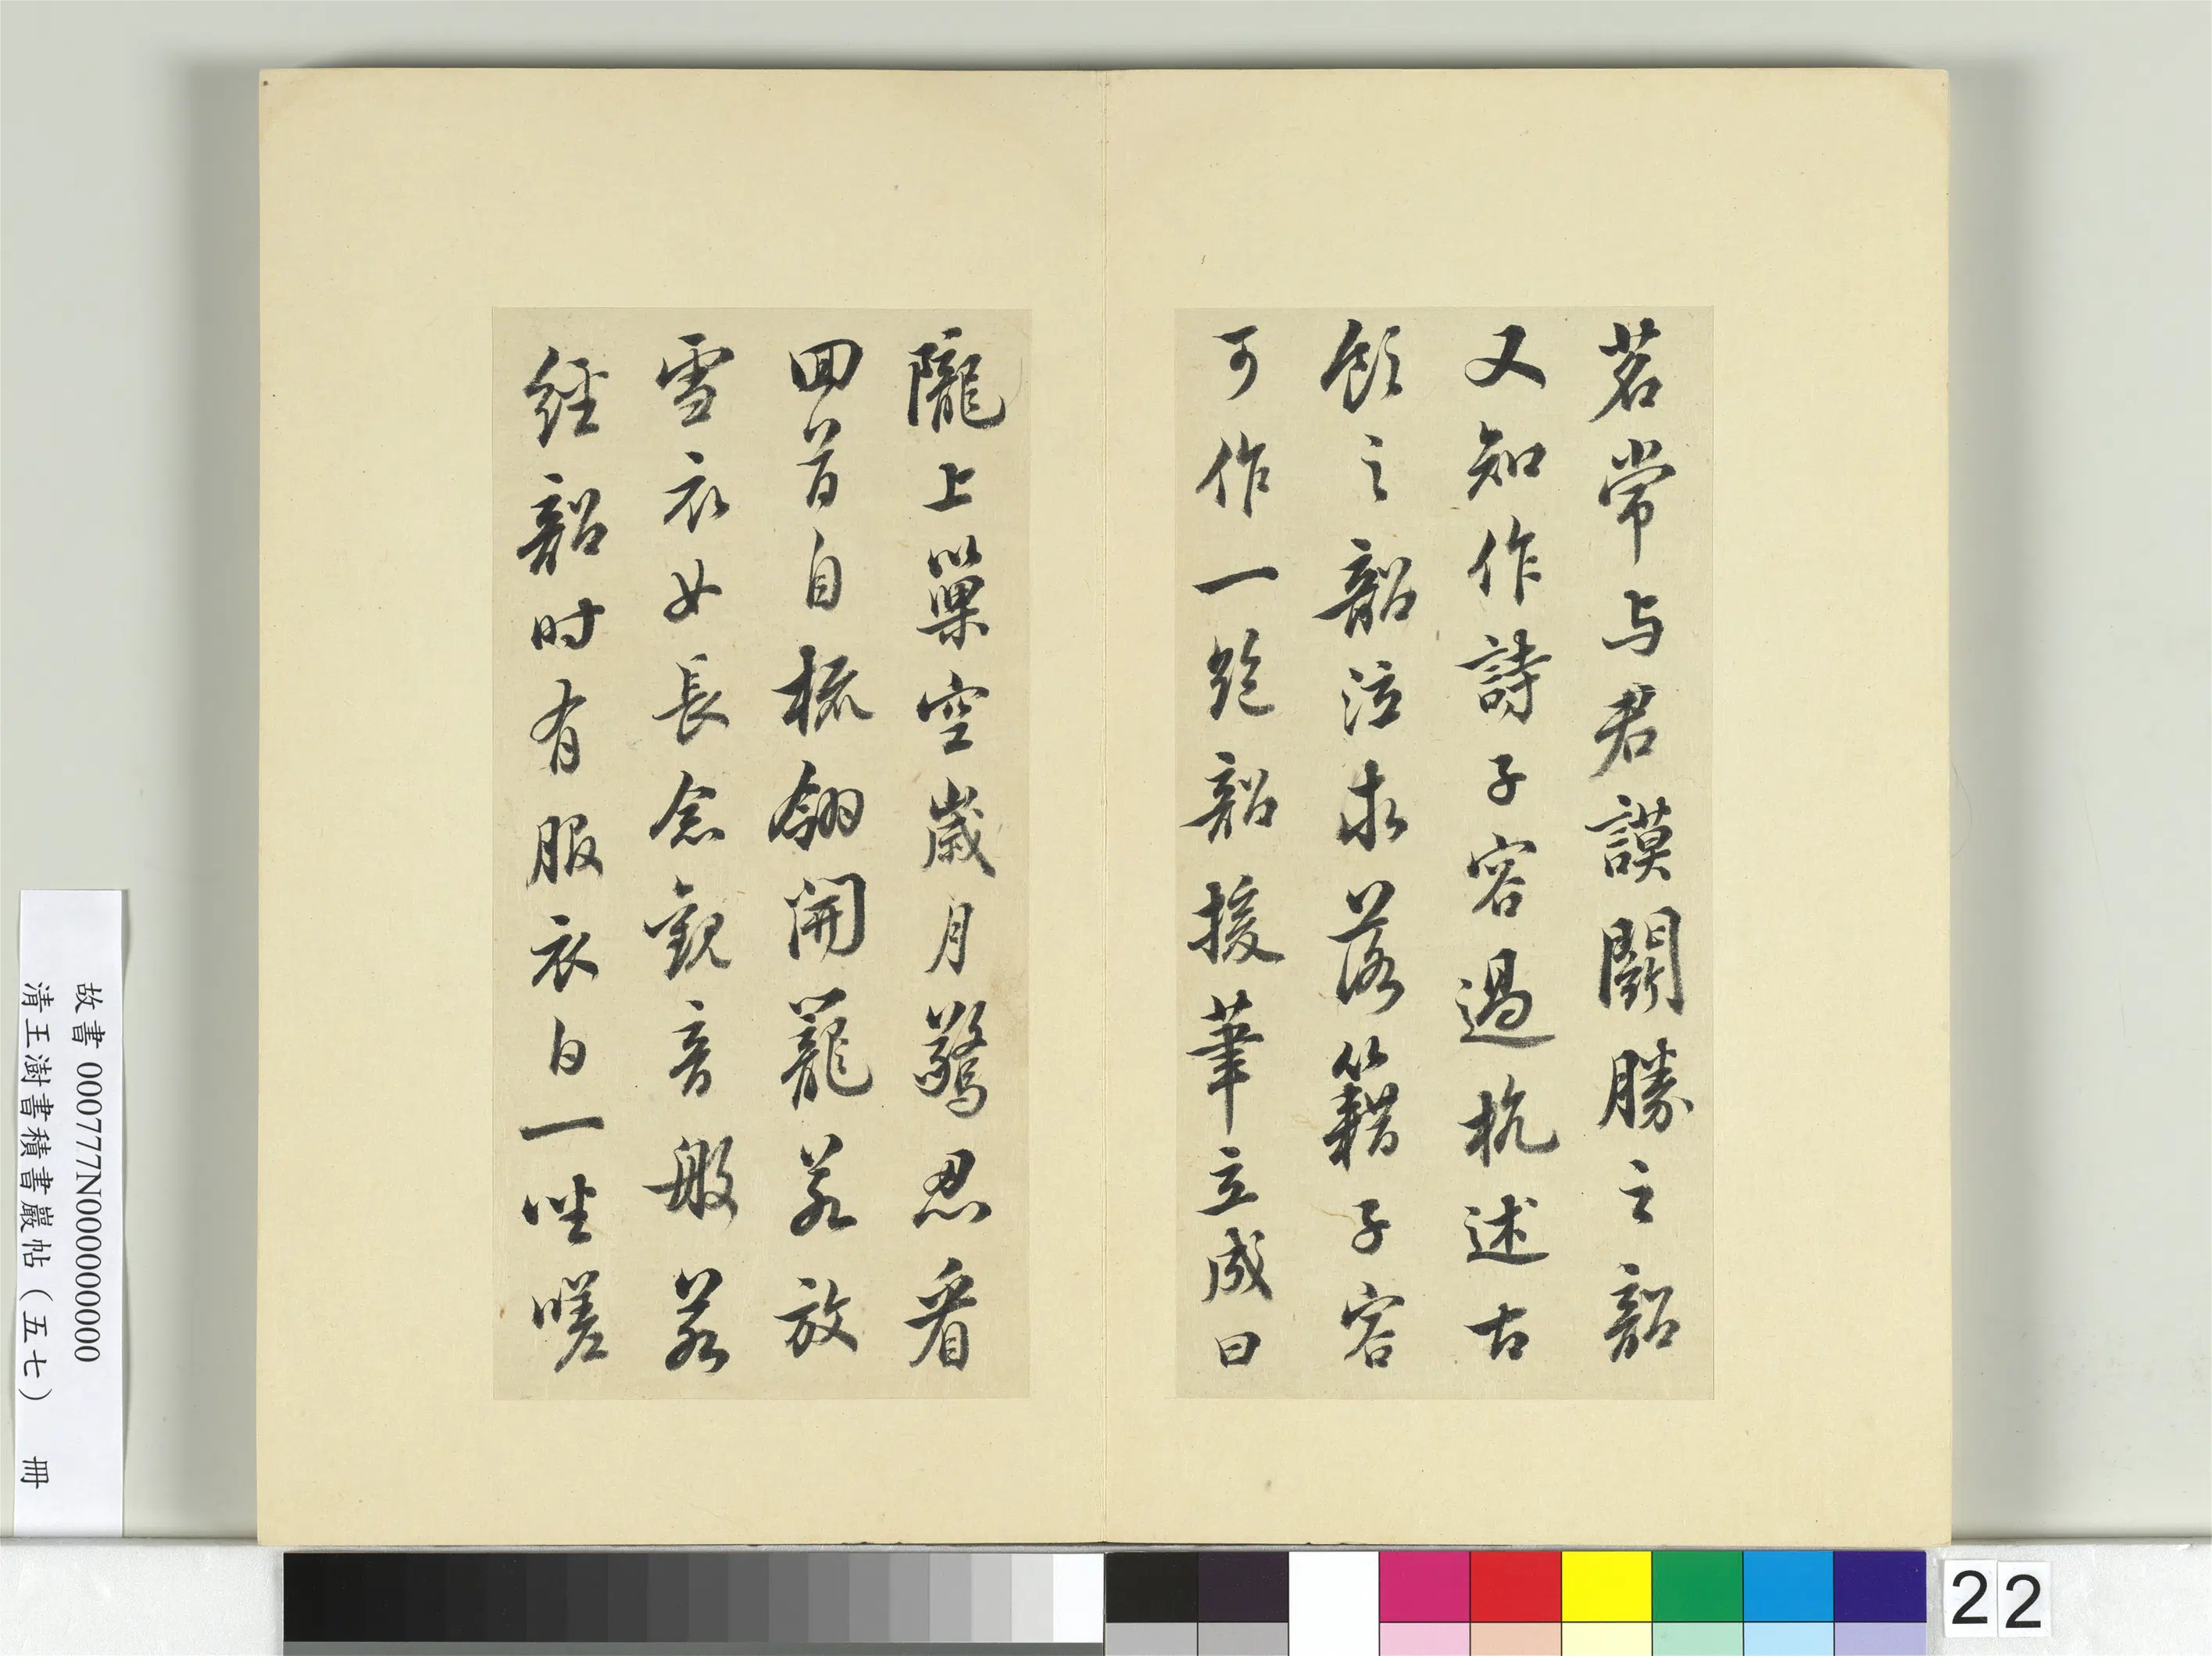 茗常与君謨鬪勝之韶
又知作詩子容過杭述古
飲之韶泣求落籍子容
可作一絶韶援筆立成曰
隴上巢空歲月驚忍看
回首自梳翎開籠若放
雪衣女長念觀音般若
經韶时有服衣白一坐嗟
故書 000777N000000000
清王澍書積書巖帖（五七） 冊
22